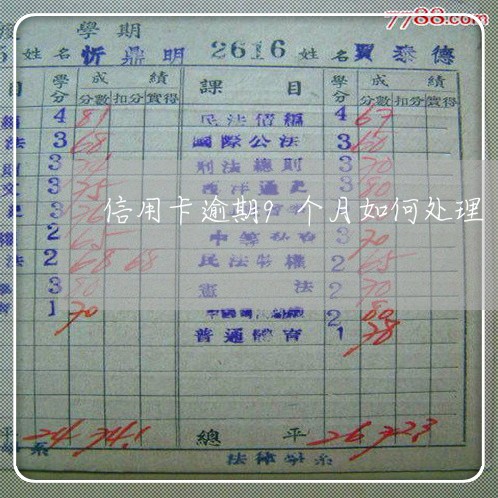 7788.com
學期
姓名 忻鼎明 2616 姓名 賈泰德
目 學分 成績 課目 學分 成績
分數 扣分 實得 分數 扣分 實得
4 81 民法債編 4 67
法 3 68 國際公法 3 60
3 刑法總則 3 70
3 75 西洋通史 3 80
信用卡逾期9个月如何处理
2 65 3 70
法 2 68 68 民法物權 2 65
3 80 憲法 2 70
1 70 2 80
普通體育 1 78
平 24 74.1 總平 26 72.3
法律學系